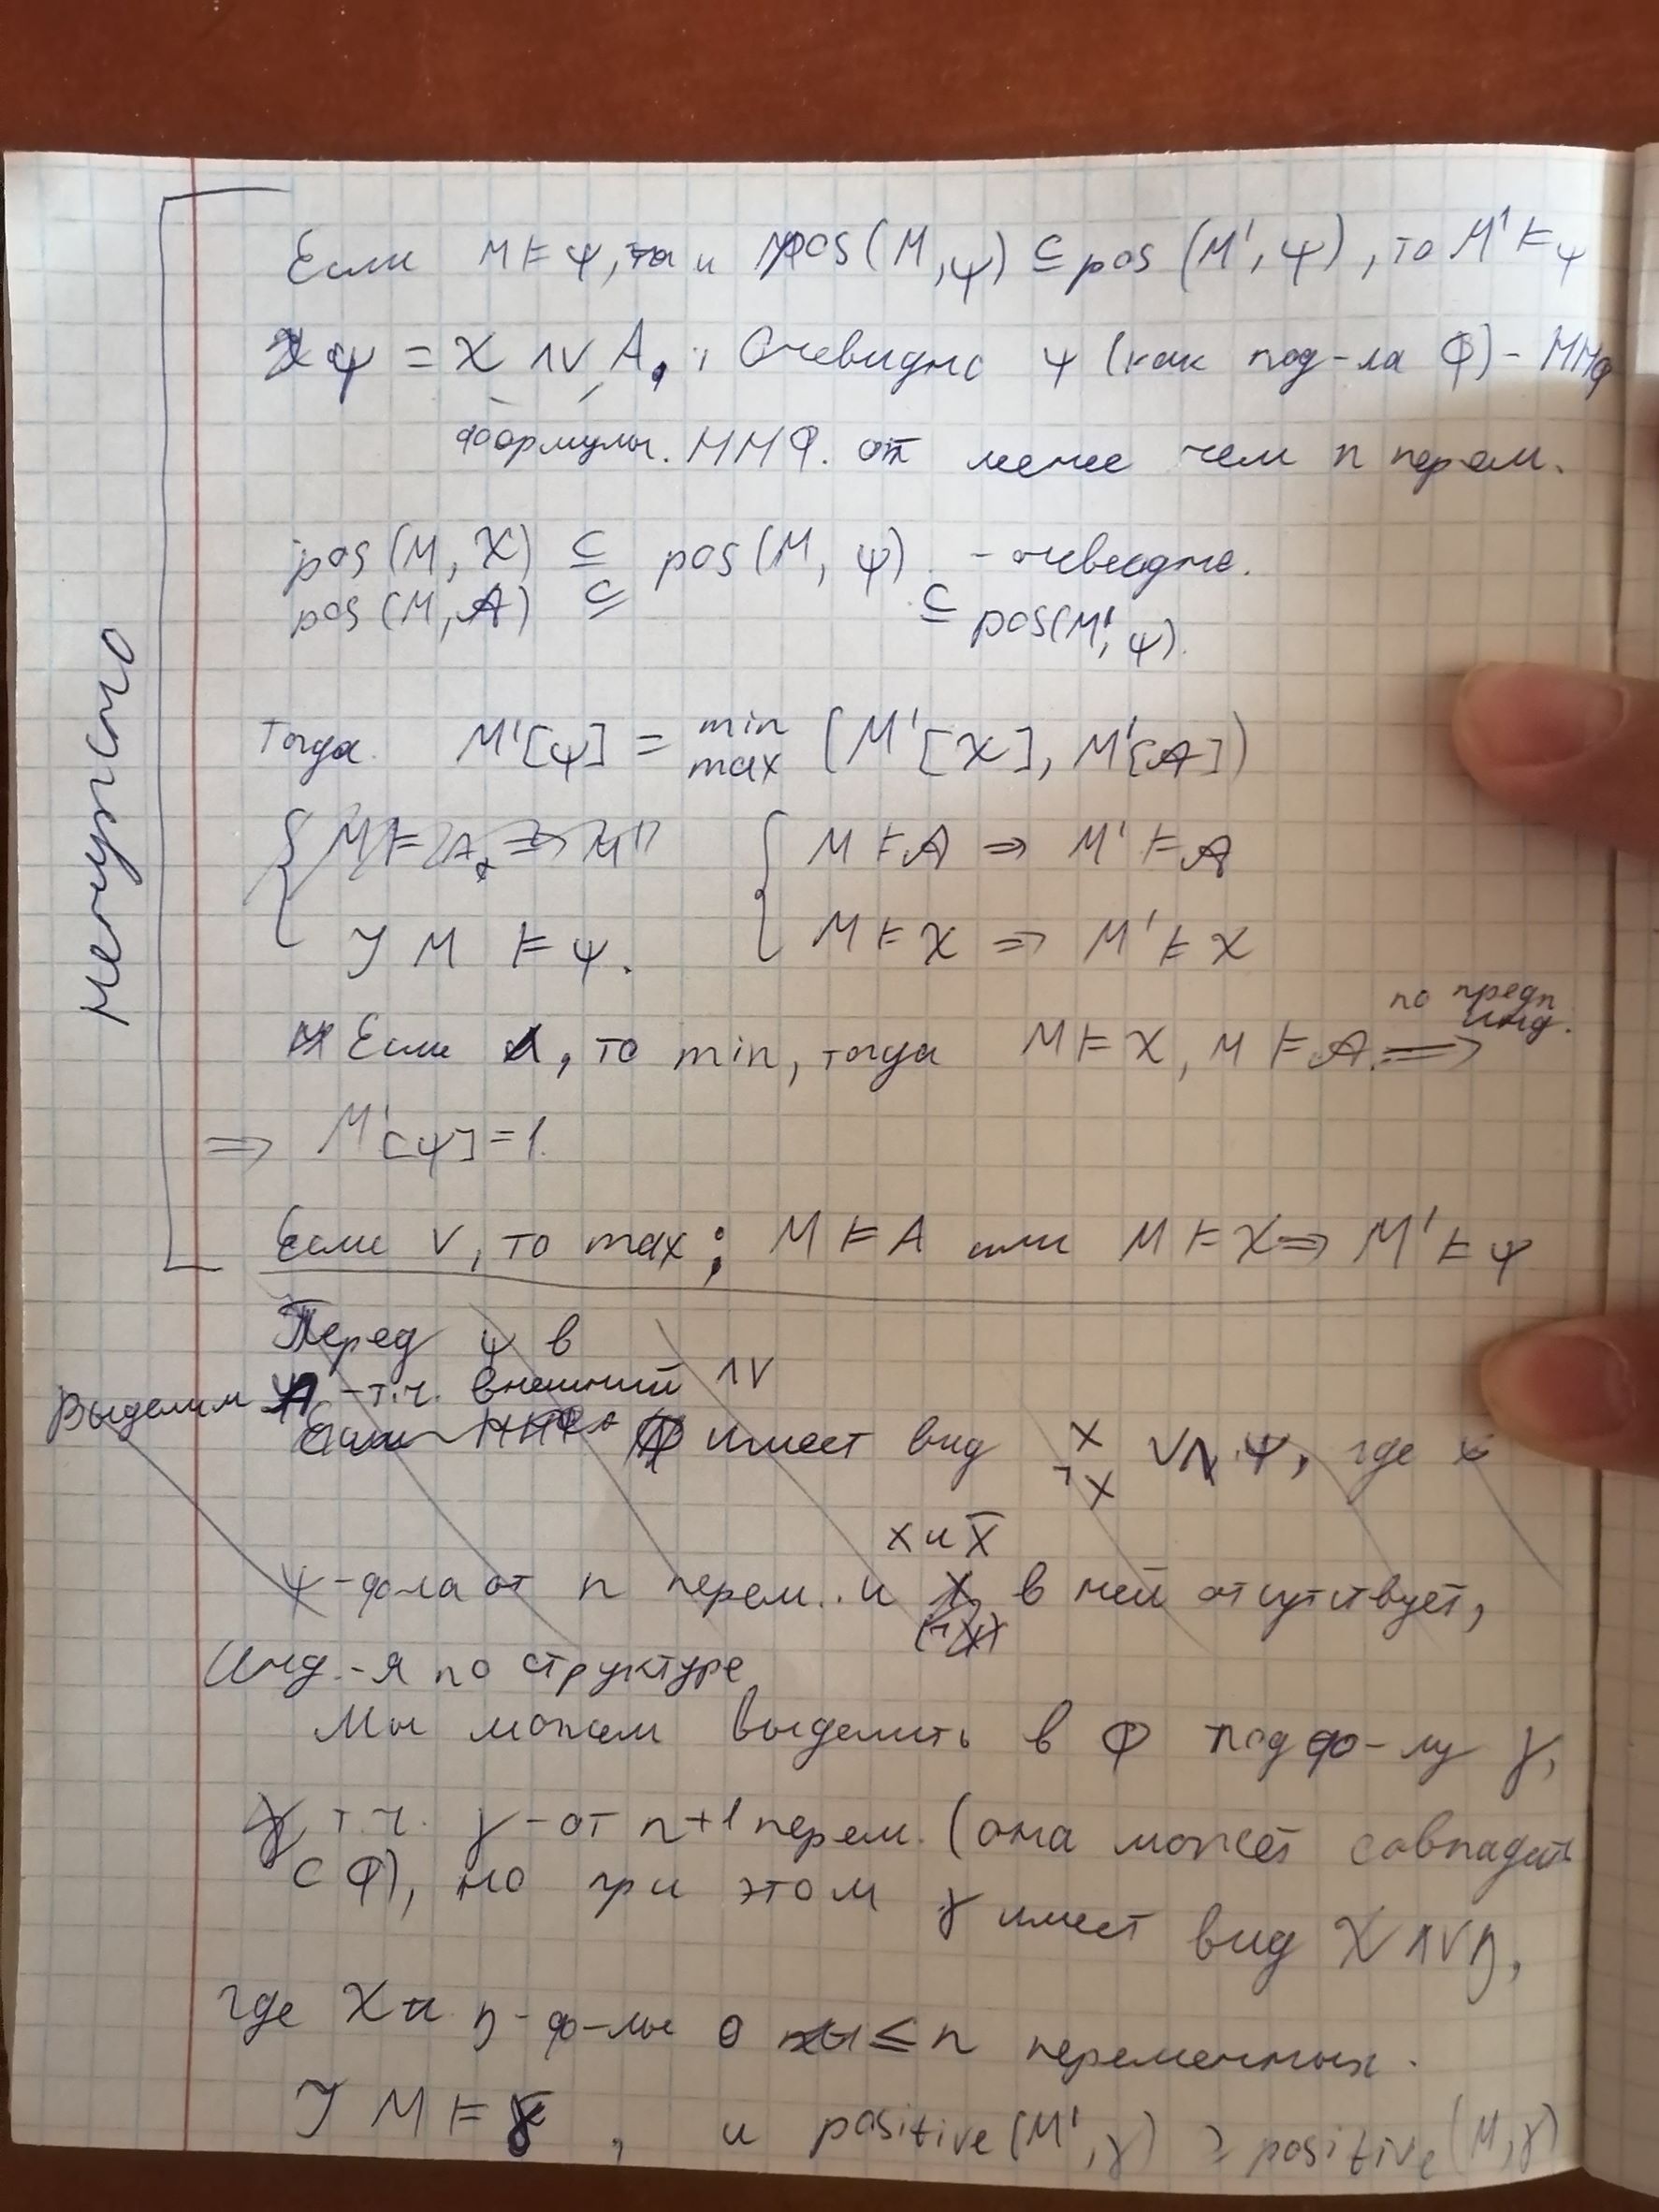 Ненужно
Если M ⊨ ψ, и pos(M, ψ) ⊆ pos(M', ψ), то M' ⊨ ψ
ψ = χ ∧∨ A, Очевидно ψ (как под-ла Ф) -
формулы. ННФ. от менее чем n перем.
pos(M, χ) ⊆ pos(M, ψ) - очевидно.
pos(M, A) ⊆ ⊆ pos(M', ψ).
Тогда M'[ψ] = min max (M'[χ], M'[A])
M ⊨ A ⇒ M' ⊨ A
M ⊨ ψ. M ⊨ χ ⇒ M' ⊨ χ
Если ∧, то min, тогда M ⊨ χ, M ⊨ A ⇒ по предп. инд.
⇒ M'[ψ] = 1.
Если ∨, то max; M ⊨ A или M ⊨ χ ⇒ M' ⊨ ψ
Перед ψ в
Выделим - т.ч. внешний ∧∨
имеет вид x ¬x ∨∧ ψ, где
x и x̄
ψ - ф-ла от n перем. и в ней отсутствует,
Инд.-я по структуре
Мы можем выделить в Ф подфо-лу γ,
т.ч. γ - от n+1 перем. (она может совпадать
с Ф), но при этом γ имеет вид χ ∧∨ η,
где χ и η - фо-лы о ≤ n переменных.
M ⊨ γ, и positive(M', γ) ⊇ positive(M, γ)